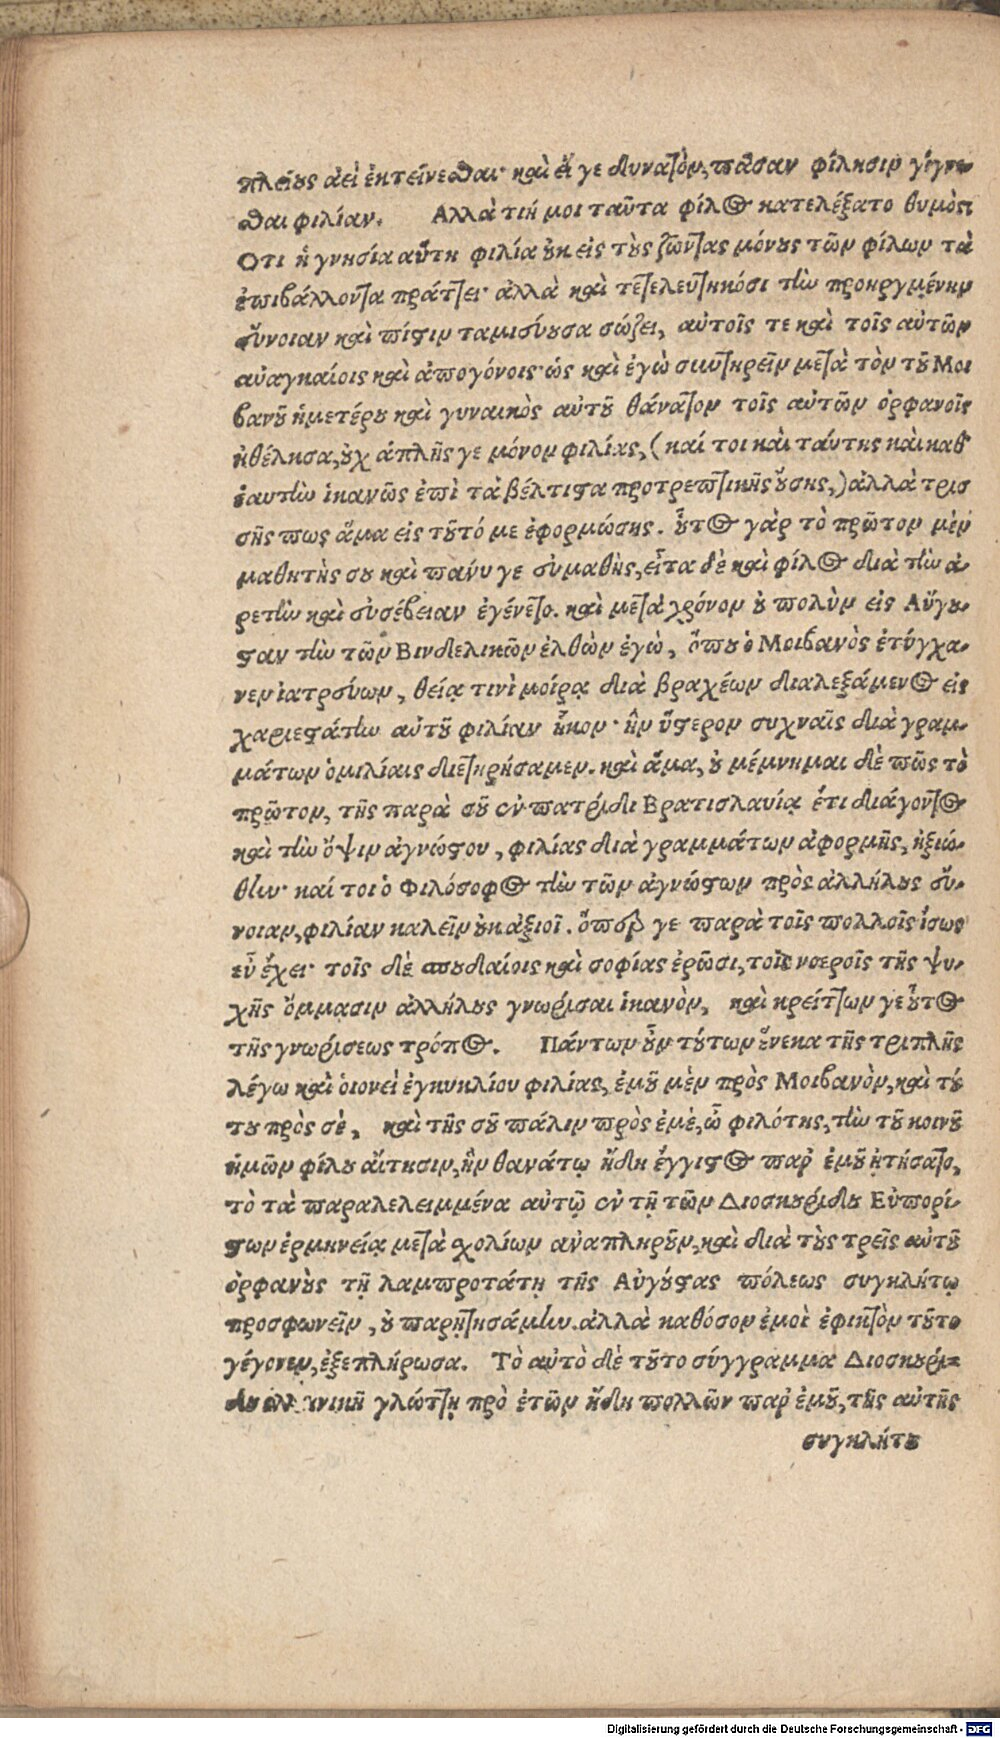 πλείους ἀεὶ ἐκτείνεσθαι· καὶ εἴ γε δυνατὸν, πᾶσαν φίλησιν γίγνε-
σθαι φιλίαν. Αλλὰ τιή μοι ταῦτα φίλος κατελέξατο θυμὸς;
Ὅτι ἡ γνησία αὕτη φιλία οὐκ εἰς τοὺς ζῶντας μόνους τῶν φίλων τὰ
ἐπιβάλλοντα πράττει· ἀλλὰ καὶ τετελευτηκόσι τὴν προηργμένην
εὔνοιαν καὶ πίστιν ταμιεύουσα σώζει, αὐτοῖς τε καὶ τοῖς αὐτῶν
ἀναγκαίοις καὶ ἀπογόνοις· ὡς καὶ ἐγὼ συντηρεῖν μετὰ τὸν τοῦ Μοι
βανοῦ ἡμετέρου καὶ γυναικὸς αὐτοῦ θάνατον τοῖς αὐτῶν ὀρφανοῖς
ἠθέλησα, οὐχ ἁπλῆς γε μόνον φιλίας, (καί τοι καὶ ταύτης καὶ καθ
ἑαυτὴν ἱκανῶς ἐπὶ τὰ βέλτιστα προτρεπτικῆς οὔσης,) ἀλλὰ τρισ
σῆς πως ἅμα εἰς τοῦτό με ἐφορμώσης. οὗτος γὰρ τὸ πρῶτον μὲν
μαθητής σου καὶ πάνυ γε εὐμαθὴς, εἶτα δὲ καὶ φίλος διὰ τὴν ἀ-
ρετὴν καὶ εὐσέβειαν ἐγένετο. καὶ μετὰ χρόνον οὐ πολὺν εἰς Αὔγου-
σταν τὴν τῶν Βινδελικῶν ἐλθὼν ἐγὼ, ὅπου ὁ Μοιβανὸς ἐτύγχα-
νεν ἰατρεύων, θείᾳ τινὶ μοίρᾳ διὰ βραχέων διαλεξάμενος εἰς
χαριεστάτην αὐτοῦ φιλίαν ἧκον· ἣν ὕστερον συχναῖς διὰ γραμ-
μάτων ὁμιλίαις διετηρήσαμεν. καὶ ἅμα, οὐ μέμνημαι δὲ πῶς τὸ
πρῶτον, τῆς παρὰ σοῦ ἐν πατρίδι Βρατισλαυίᾳ ἔτι διάγοντος
καὶ τὴν ὄψιν ἀγνώστου, φιλίας διὰ γραμμάτων ἀφορμῆς, ἠξιώ-
θην· καί τοι ὁ Φιλόσοφος τὴν τῶν ἀγνώστων πρὸς ἀλλήλους εὔ-
νοιαν, φιλίαν καλεῖν οὐκ ἀξιοῖ. ὅπερ γε παρὰ τοῖς πολλοῖς ἴσως
εὖ ἔχει· τοῖς δὲ σπουδαίοις καὶ σοφίας ἐρῶσι, τοῖς νοεροῖς τῆς ψυ-
χῆς ὄμμασιν ἀλλήλους γνωρίσαι ἱκανὸν, καὶ κρείττων γε οὗτος
τῆς γνωρίσεως τρόπος. Πάντων οὖν τούτων ἕνεκα τῆς τριπλῆς
λέγω καὶ οἱονεὶ ἐγκυκλίου φιλίας, ἐμοῦ μὲν πρὸς Μοιβανὸν, καὶ τού
του πρὸς σὲ, καὶ τῆς σοῦ πάλιν πρὸς ἐμὲ, ὦ φιλότης, τὴν τοῦ κοινοῦ
ἡμῶν φίλου αἴτησιν, ἣν θανάτῳ ἤδη ἔγγιστος παρ' ἐμοῦ ᾐτήσατο,
τὸ τὰ παραλελειμμένα αὐτῷ ἐν τῇ τῶν Διοσκουρίδου Εὐπορί-
στων ἑρμηνείᾳ μετὰ σχολίων ἀναπληροῦν, καὶ διὰ τοὺς τρεῖς αὐτοῦ
ὀρφανοὺς τῇ λαμπροτάτῃ τῆς Αὐγούστας πόλεως συγκλήτῳ
προσφωνεῖν, οὐ παρῃτησάμην. ἀλλὰ καθόσον ἐμοὶ ἐφικτὸν τοῦτο
γέγονεν, ἐξεπλήρωσα. Τὸ αὐτὸ δὲ τοῦτο σύγγραμμα Διοσκουρί-
δου ἑλληνικῇ γλώττῃ πρὸ ἐτῶν ἤδη πολλῶν παρ' ἐμοῦ, τῆς αὐτῆς
συγκλήτου